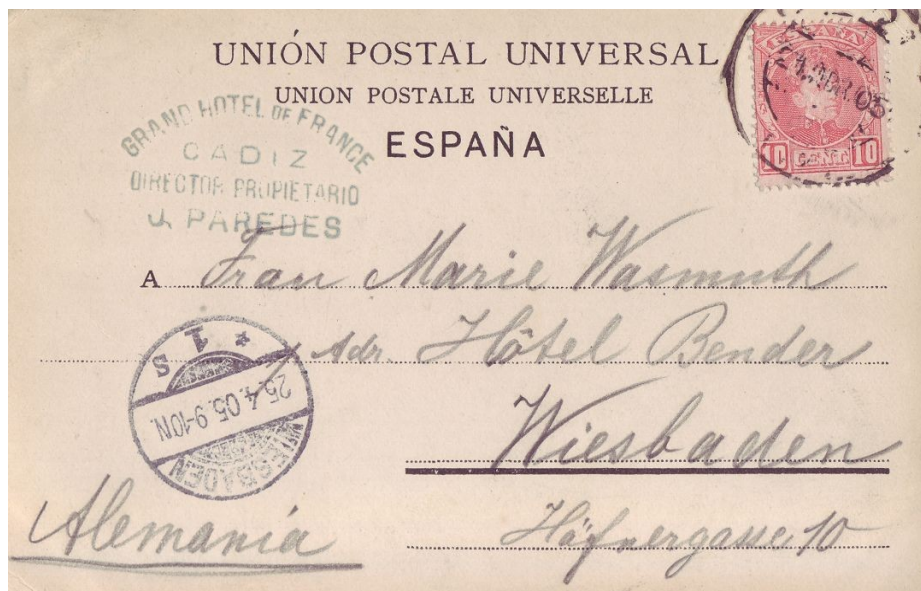 UNIÓN POSTAL UNIVERSAL
UNION POSTALE UNIVERSELLE
ESPAÑA
GRAND HOTEL DE FRANCE
CADIZ
DIRECTOR PROPIETARIO
J. PAREDES
ABR 05
10 10
A Frau Marie Wasmuth
Adr. Hôtel Bender
Wiesbaden
Häfnergasse 10
Alemania
* 1 S
25.4.05.9-10N.
WIESBADEN